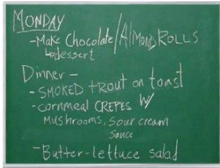 MONDAY
-Make Chocolate/Almond ROLLS
↳dessert
Dinner -
-SMOKED trout on toast
-cornmeal CREPES W/
Mushrooms, sour cream
sauce
-Butter-lettuce salad